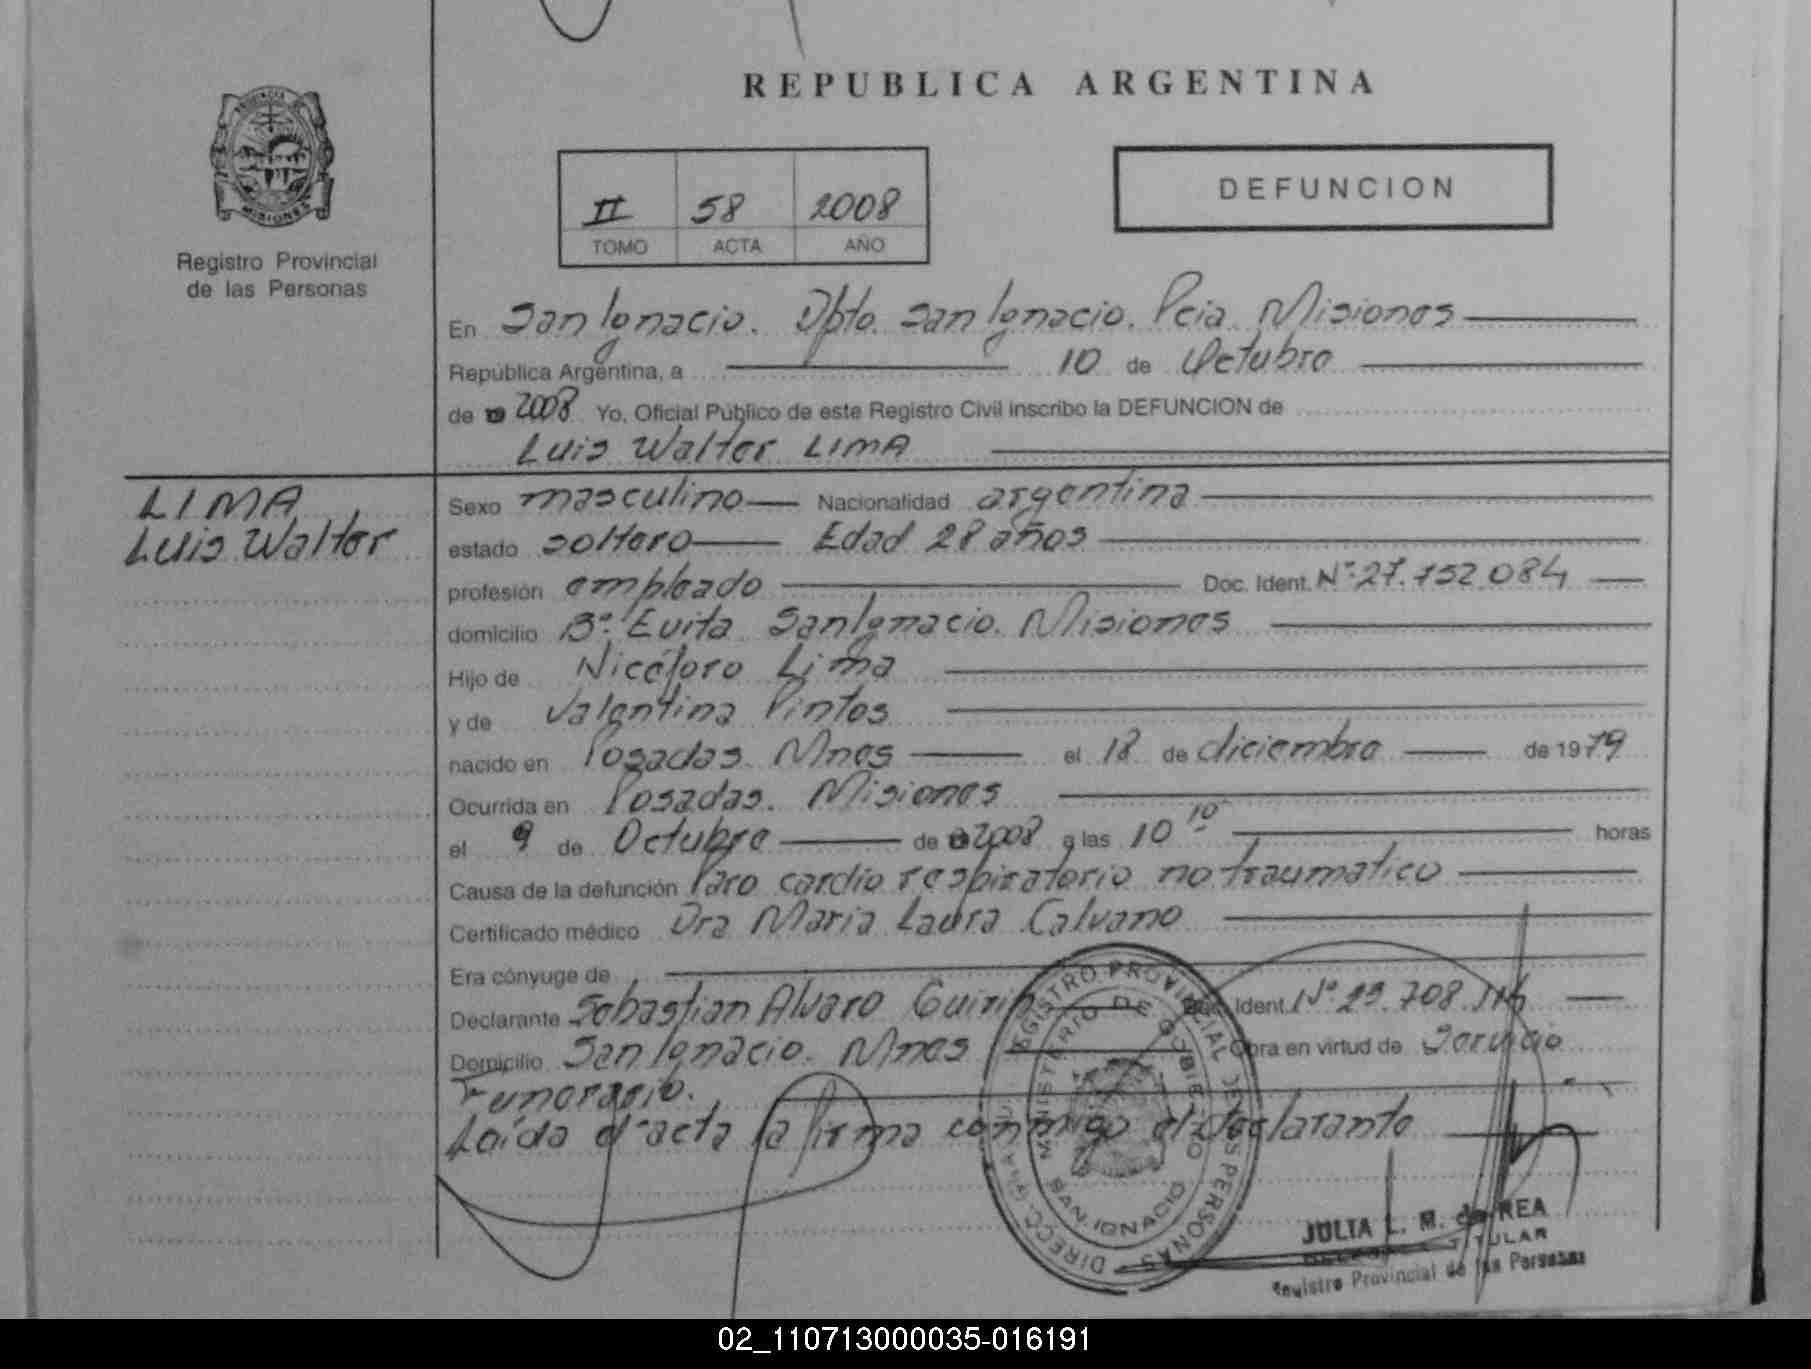 REPUBLICA ARGENTINA
PROVINCIA DE
MISIONES
Registro Provincial
de las Personas
II 58 2008
TOMO ACTA AÑO
DEFUNCION
En San Ignacio. Dpto. San Ignacio. Pcia Misiones
República Argentina, a 10 de Octubre
de 2008 Yo, Oficial Público de este Registro Civil inscribo la DEFUNCION de
Luis Walter LIMA
LIMA
Luis Walter
Sexo masculino Nacionalidad argentina
estado soltero Edad 28 años
profesión empleado Doc. Ident. Nº 27.752.084
domicilio Bº Evita San Ignacio. Misiones
Hijo de Nicéforo Lima
y de Valentina Pintos
nacido en Posadas. Mnes el 18 de diciembre de 1979
Ocurrida en Posadas. Misiones
el 9 de Octubre de 2008 a las 10 10 horas
Causa de la defunción Paro cardio respiratorio no traumatico
Certificado médico Dra Maria Laura Calvano
Era cónyuge de
Declarante Sebastian Alvaro Ident. Nº 23.708.
Domicilio San Ignacio. Mnes Obra en virtud de Servicio
Funerario.
Leída el acta la firma conmigo el declarante
REGISTRO PROVINCIAL DE LAS PERSONAS
MINISTERIO DE GOBIERNO
SAN IGNACIO
JULIA L. M. de REA
TITULAR
Registro Provincial de las Personas
02_110713000035-016191